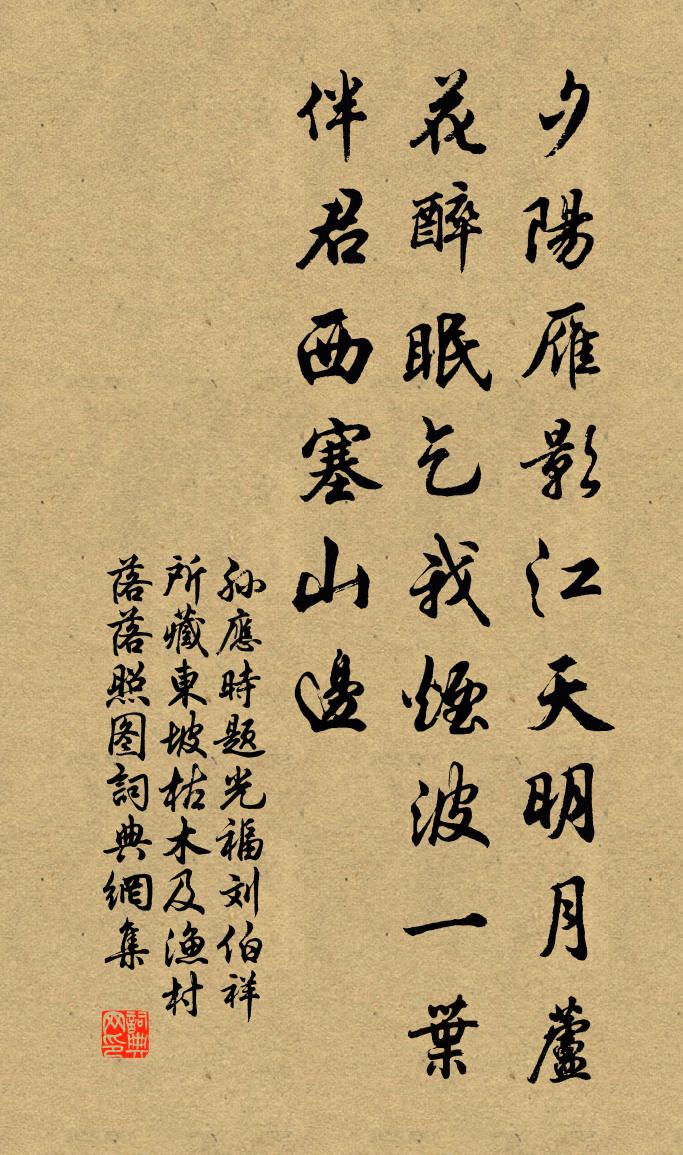 夕陽雁影江天明月蘆
花醉眠乞我煙波一葉
伴君西塞山邊
孙應時题光福刘伯祥
所藏東坡枯木及漁村
落落照图詞典網集
詞典
网印